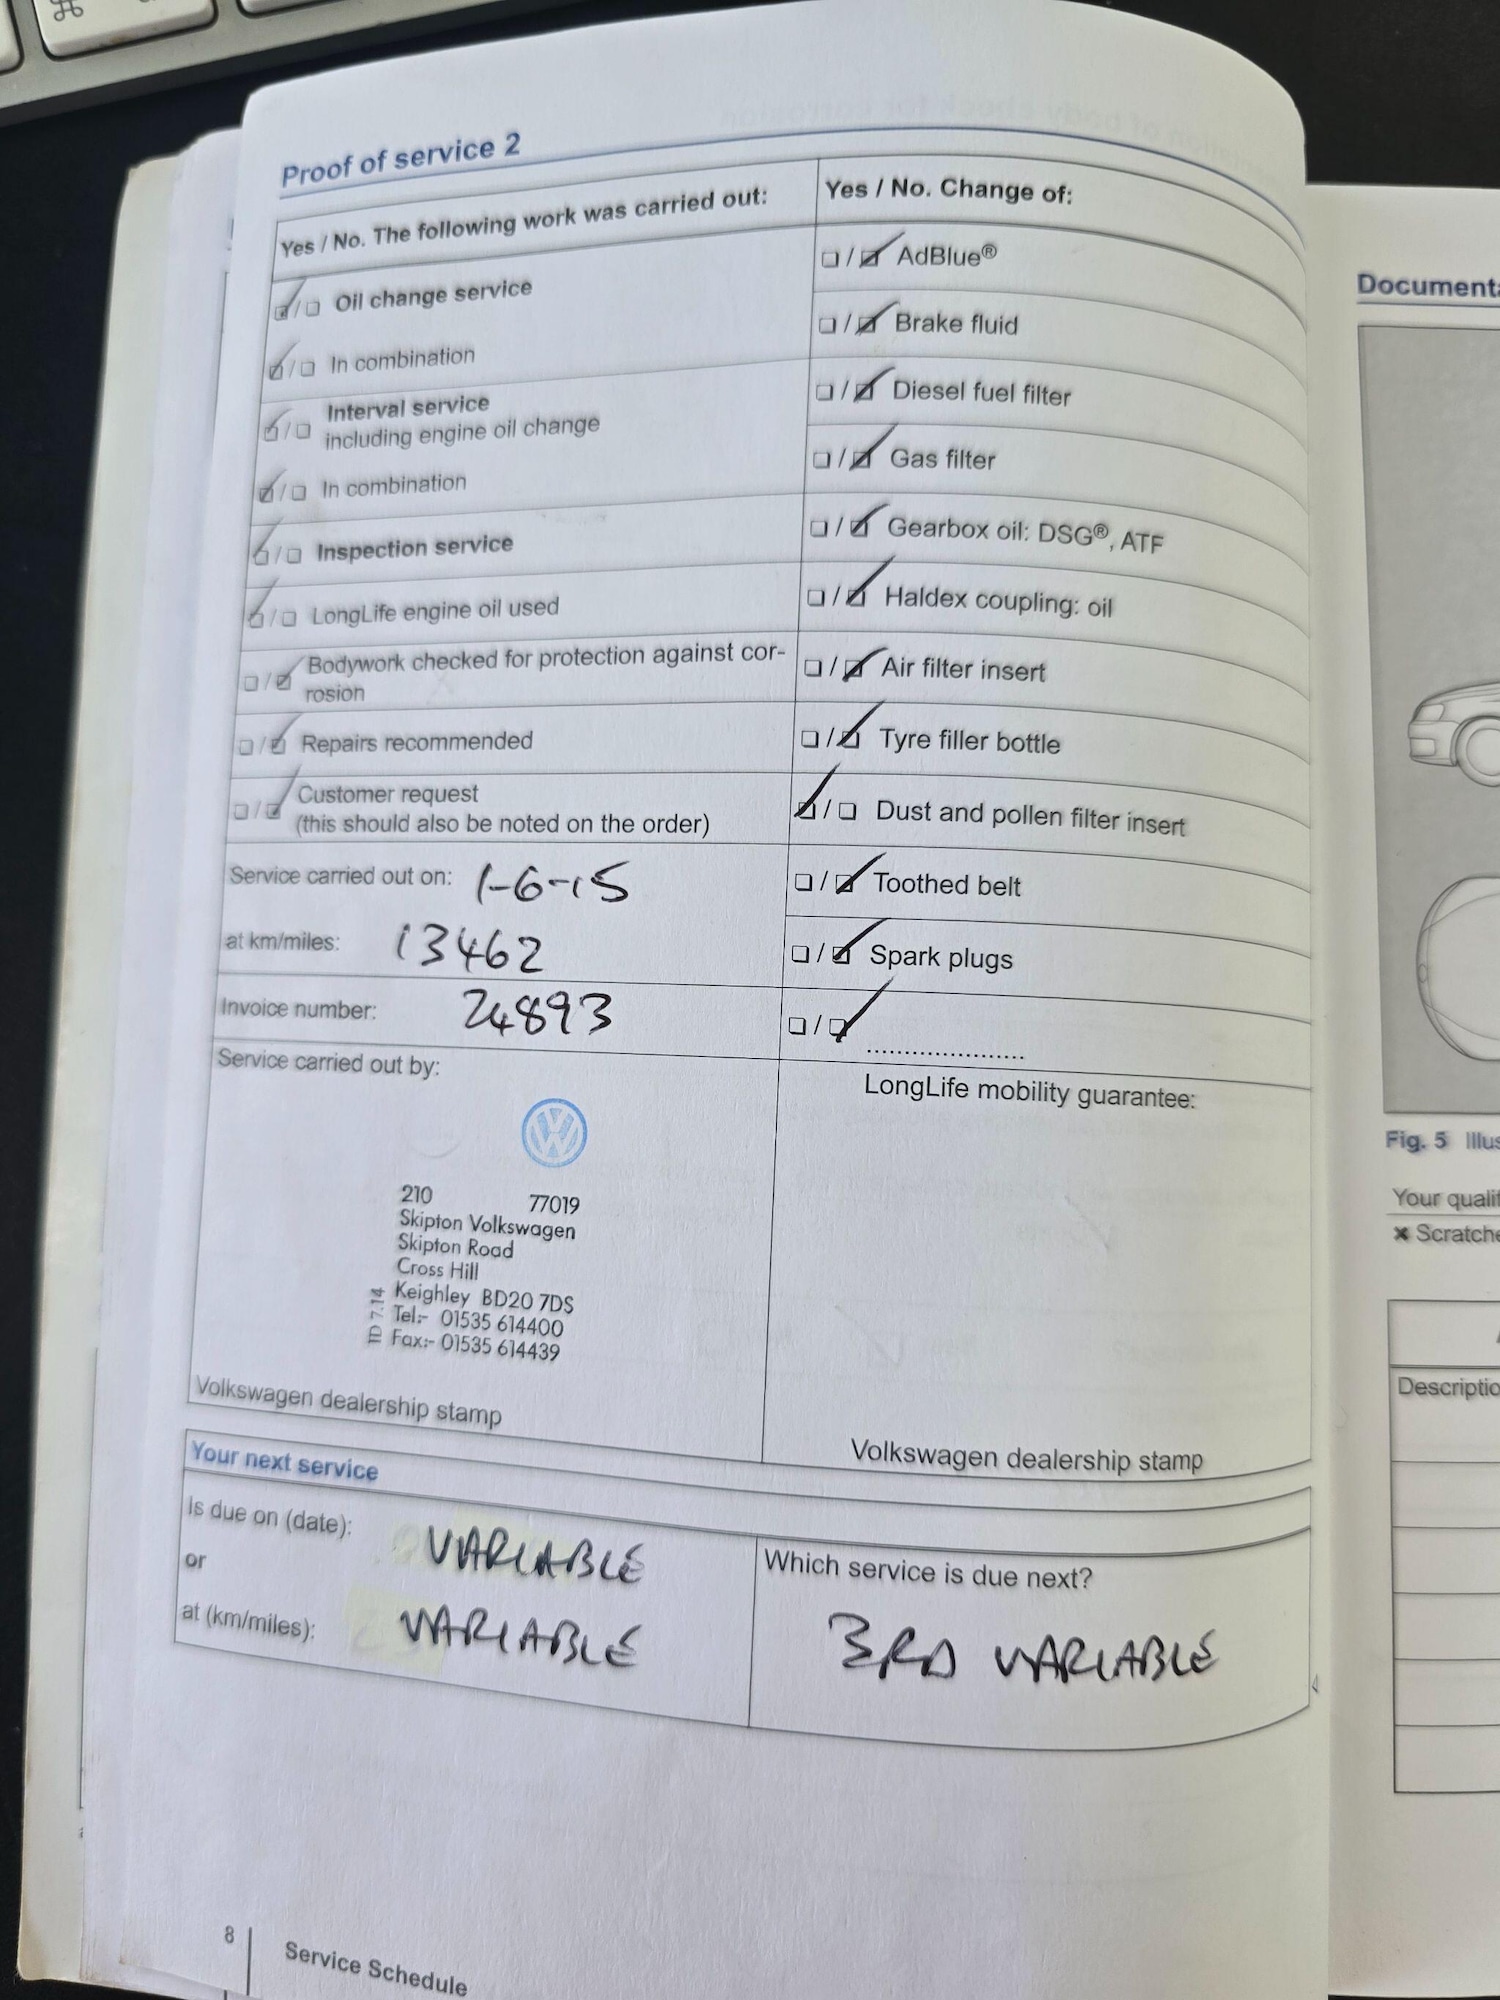 Proof of service 2
Yes / No. The following work was carried out:
Oil change service
In combination
Interval service
including engine oil change
In combination
Inspection service
LongLife engine oil used
Bodywork checked for protection against cor-
rosion
Repairs recommended
Customer request
(this should also be noted on the order)
Service carried out on: 1-6-15
at km/miles: 13462
Invoice number: 24893
Service carried out by:
210 77019
Skipton Volkswagen
Skipton Road
Cross Hill
Keighley BD20 7DS
Tel:- 01535 614400
Fax:- 01535 614439
ID 7.14
Volkswagen dealership stamp
Yes / No. Change of:
AdBlue®
Brake fluid
Diesel fuel filter
Gas filter
Gearbox oil: DSG®, ATF
Haldex coupling: oil
Air filter insert
Tyre filler bottle
Dust and pollen filter insert
Toothed belt
Spark plugs
....................
LongLife mobility guarantee:
Volkswagen dealership stamp
Your next service
Is due on (date): VARIABLE
or
at (km/miles): VARIABLE
Which service is due next?
3RD VARIABLE
8
Service Schedule
Documenta
Fig. 5 Illus
Your qualif
× Scratche
Descriptio